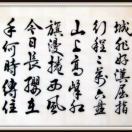 城非好漢屈指
行程二万六盤
山上高峰紅
旗漫捲西風
今日長纓在
手何時縛住